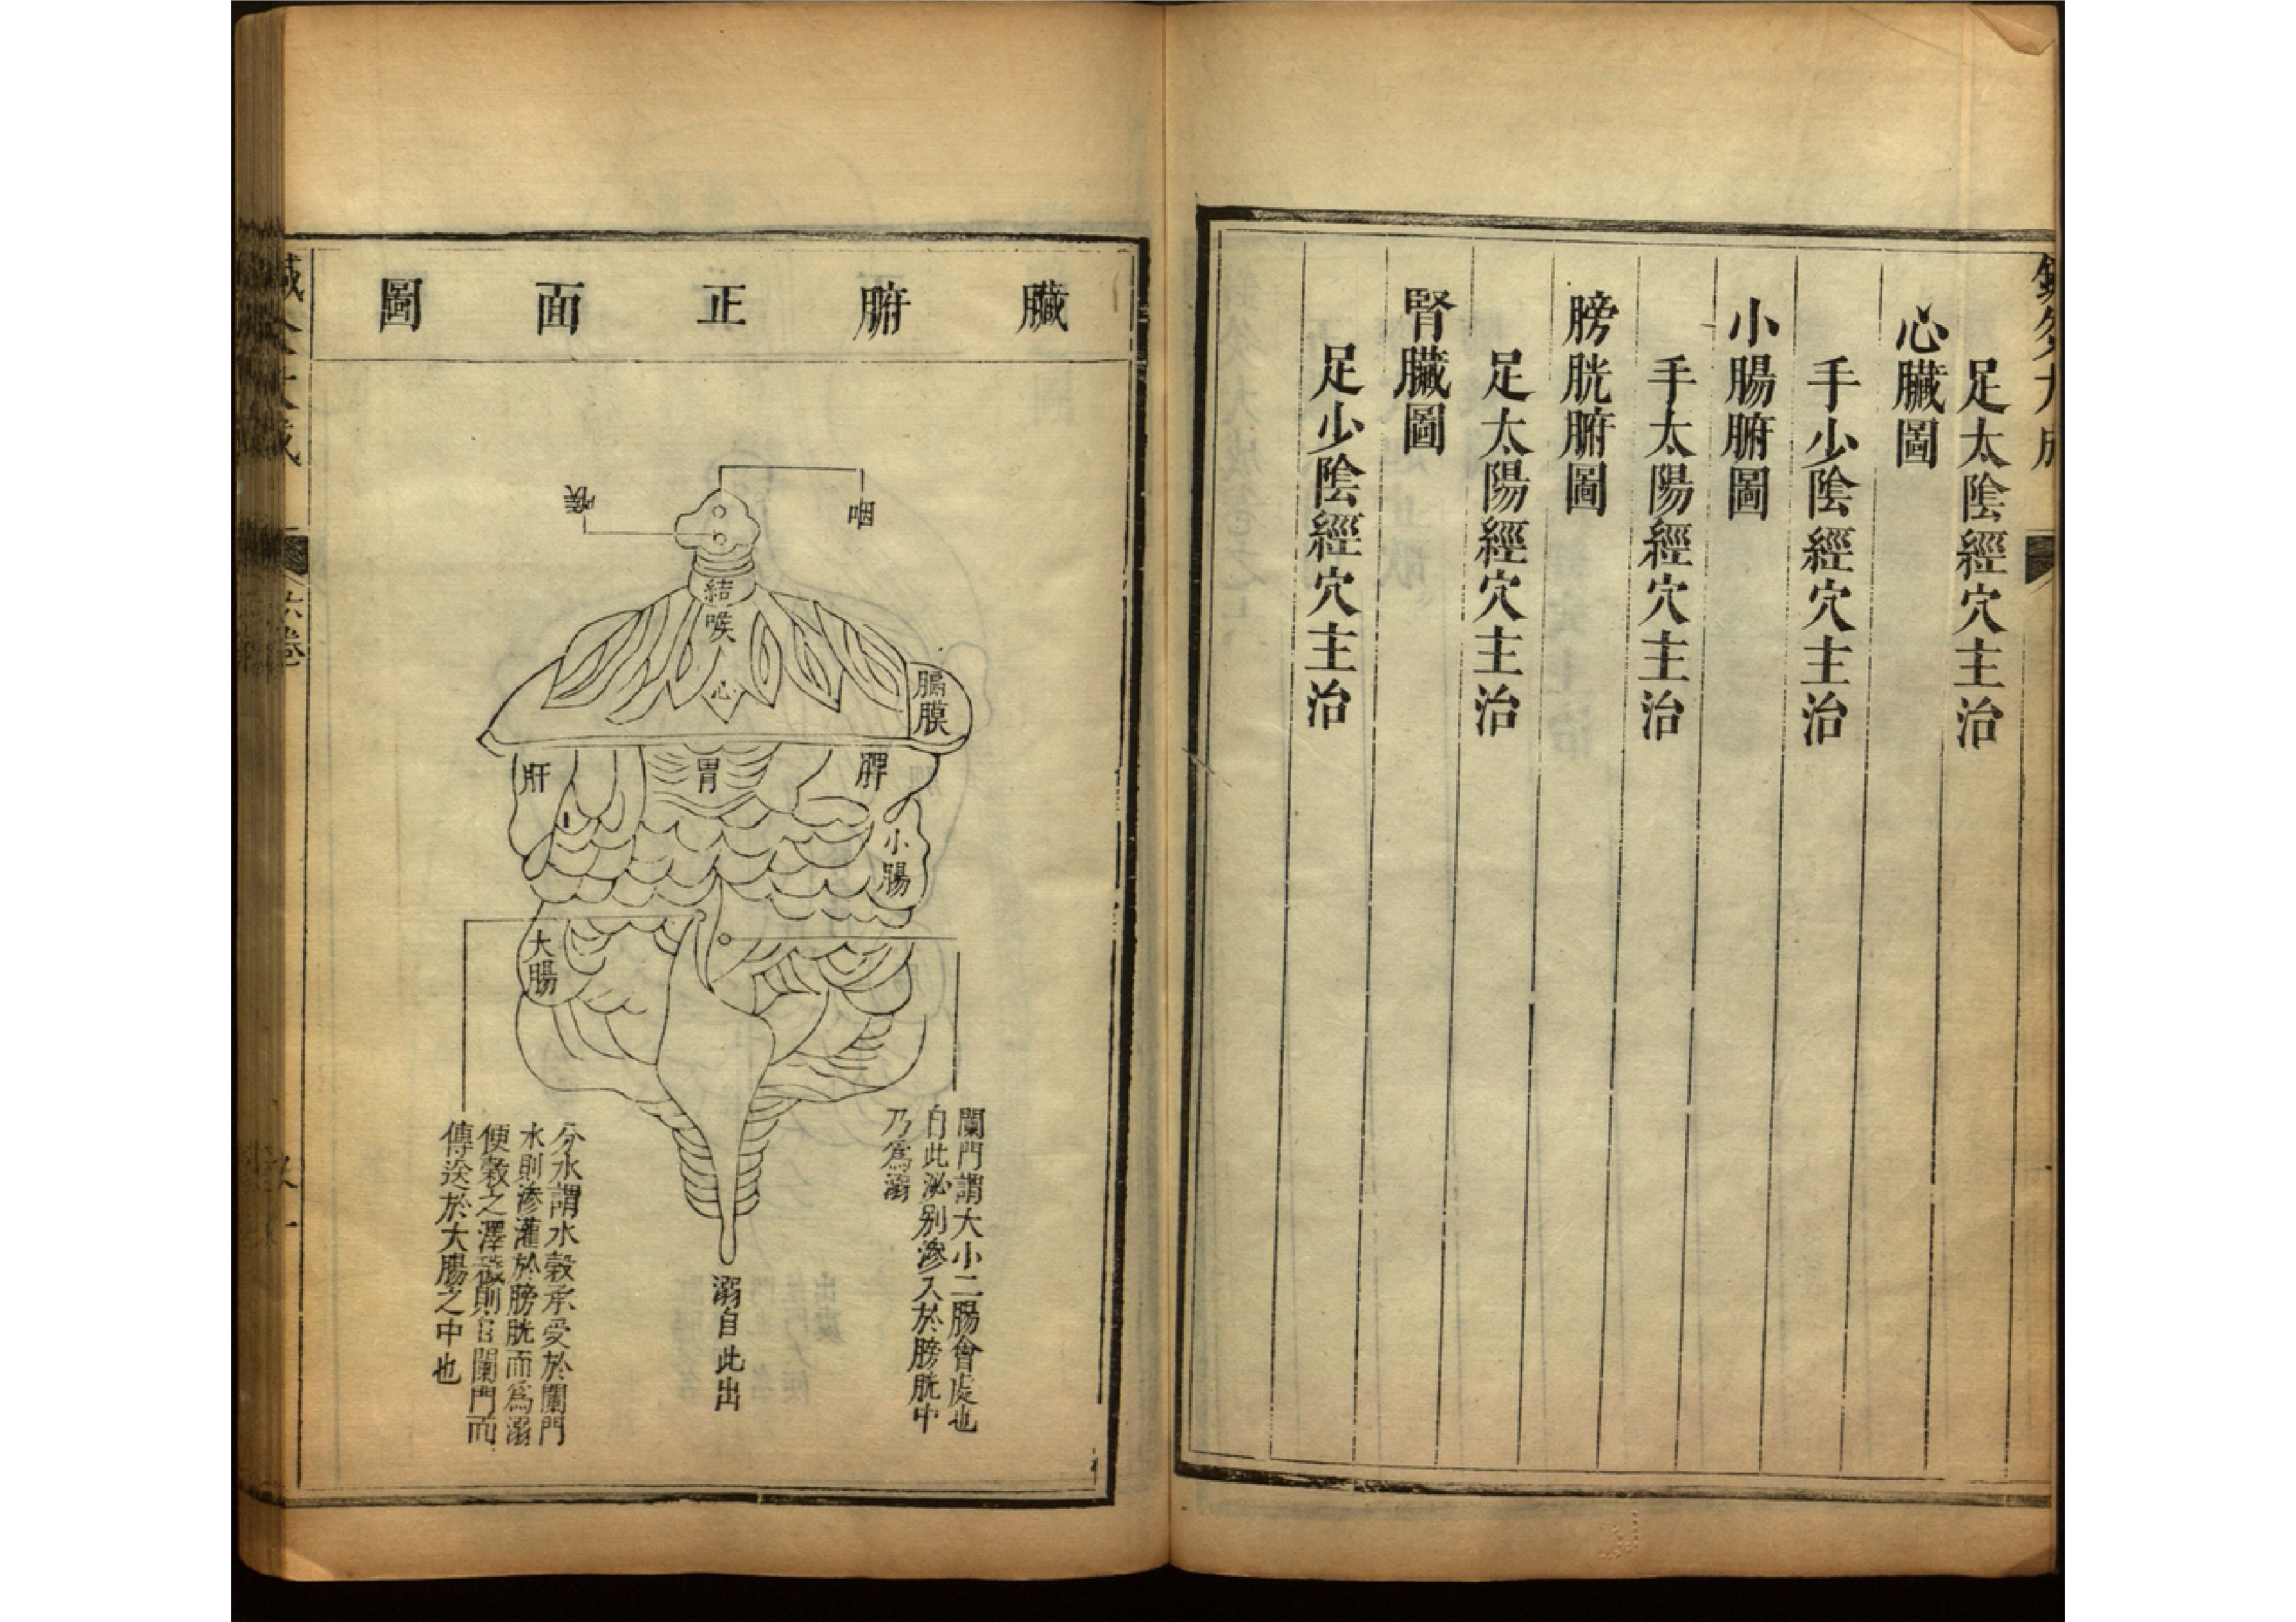 足太陰經穴主治
心臟圖
手少陰經穴主治
小腸腑圖
手太陽經穴主治
膀胱腑圖
足太陽經穴主治
腎臟圖
足少陰經穴主治
臟腑正面圖
咽
喉
結喉
心
膈膜
肝
胃
脾
小腸
大腸
闌門謂大小二腸會處也
自此泌别滲入於膀胱中
乃爲溺
溺自此出
分水謂水穀承受於闌門
水則滲灌於膀胱而爲溺
便穀之澤穢則自闌門而
傳送於大腸之中也
六卷